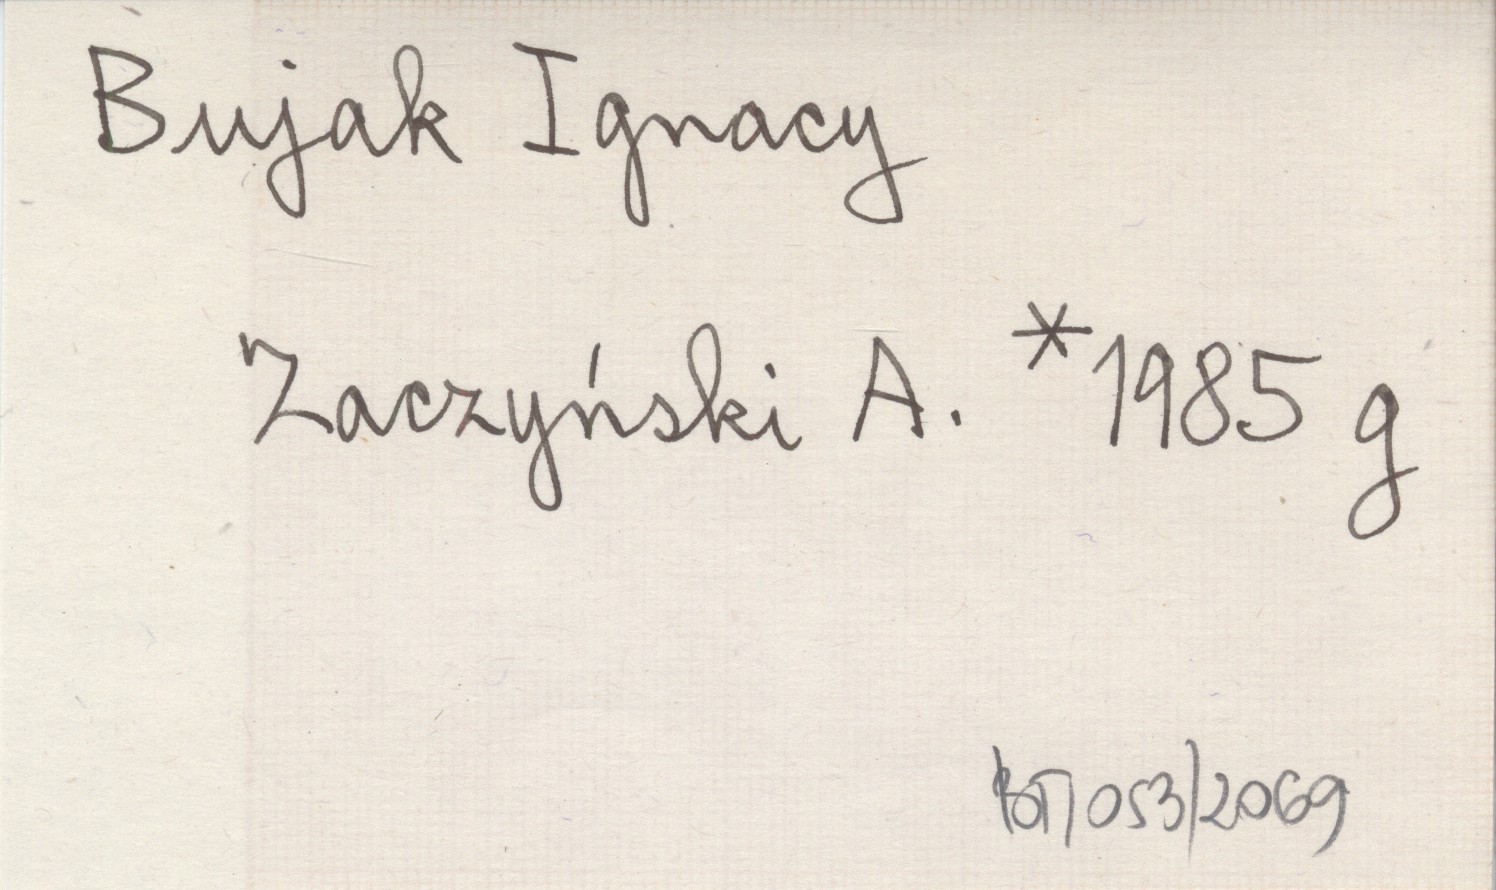 Bujak Ignacy
Zaczyński A. *1985 g
053/2069